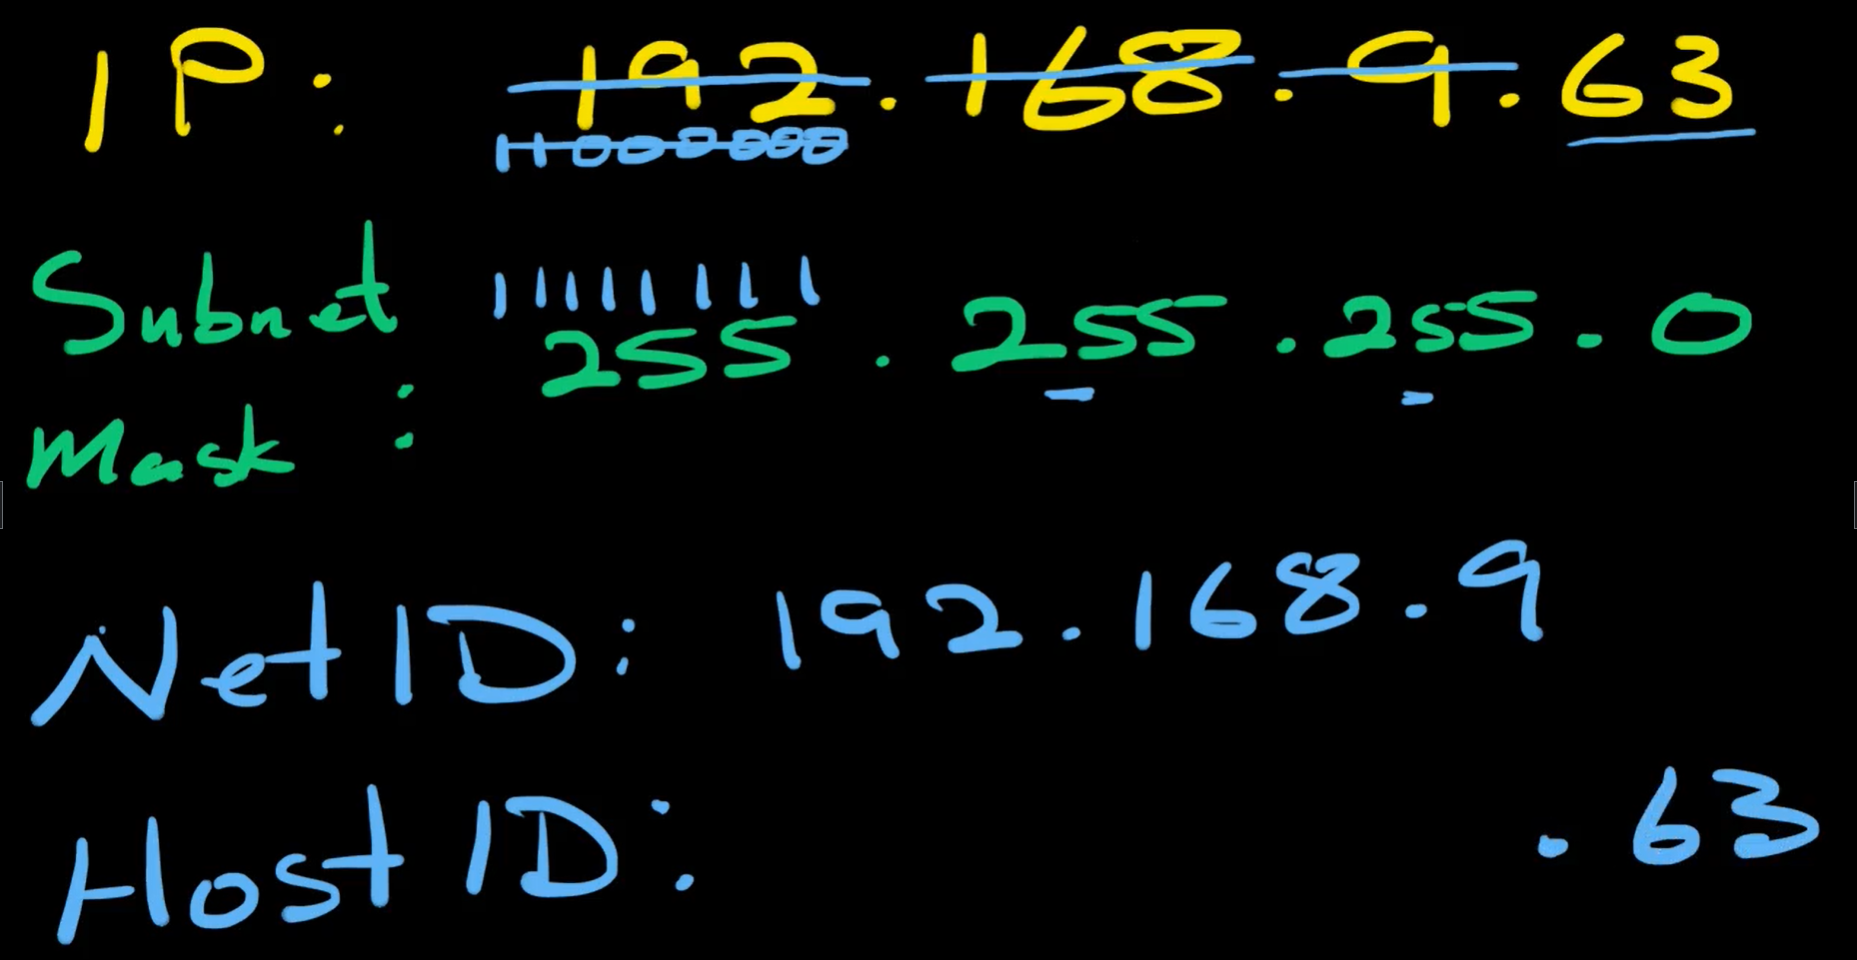 IP: 192.168.9.63
11000000
Subnet Mask:
11111111
255.255.255.0
Net ID: 192.168.9
Host ID: .63